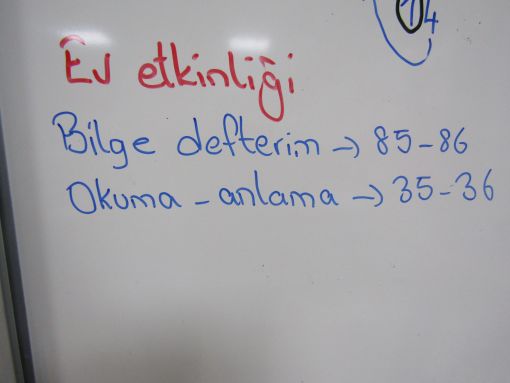 14
Ev etkinliği
Bilge defterim → 85-86
Okuma - anlama → 35-36